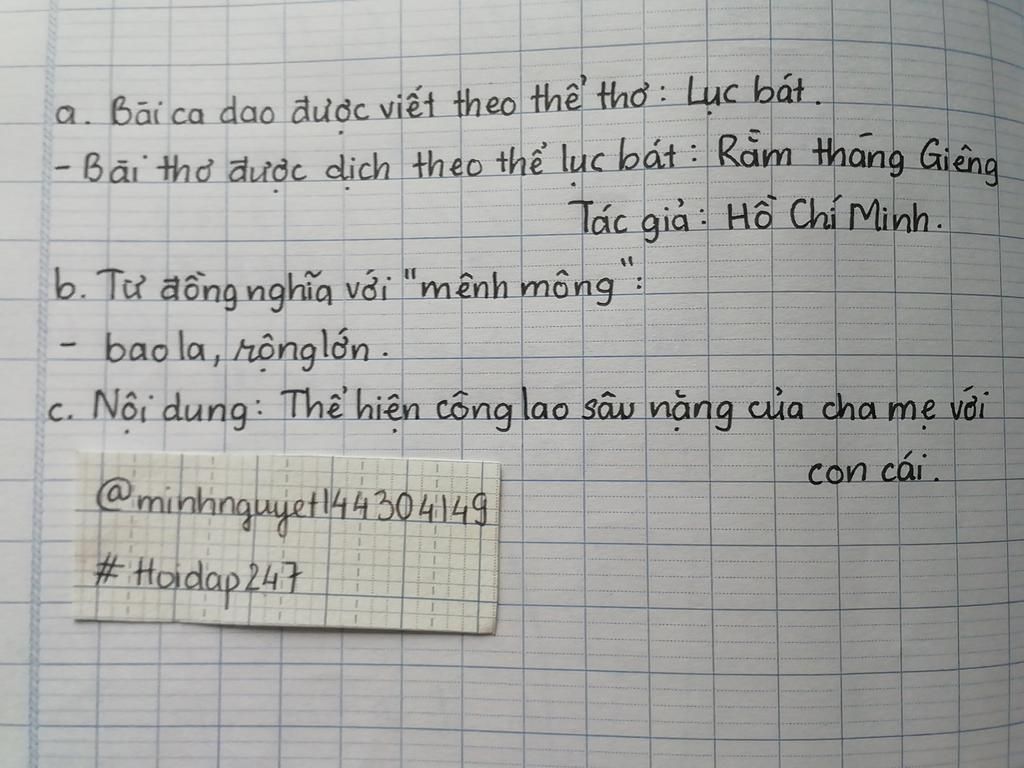 a. Bài ca dao được viết theo thể thơ: Lục bát.
- Bài thơ được dịch theo thể lục bát: Rằm tháng Giêng
Tác giả: Hồ Chí Minh.
b. Từ đồng nghĩa với "mênh mông":
- bao la, rộng lớn.
c. Nội dung: Thể hiện công lao sâu nặng của cha mẹ với
con cái.
@minhnguyet144304149
# Hoidap247